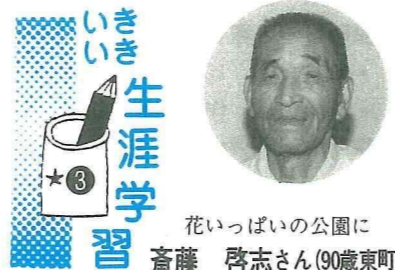 いきいき
生涯学習
★③
花いっぱいの公園に
斎藤 啓志さん(90歳東町